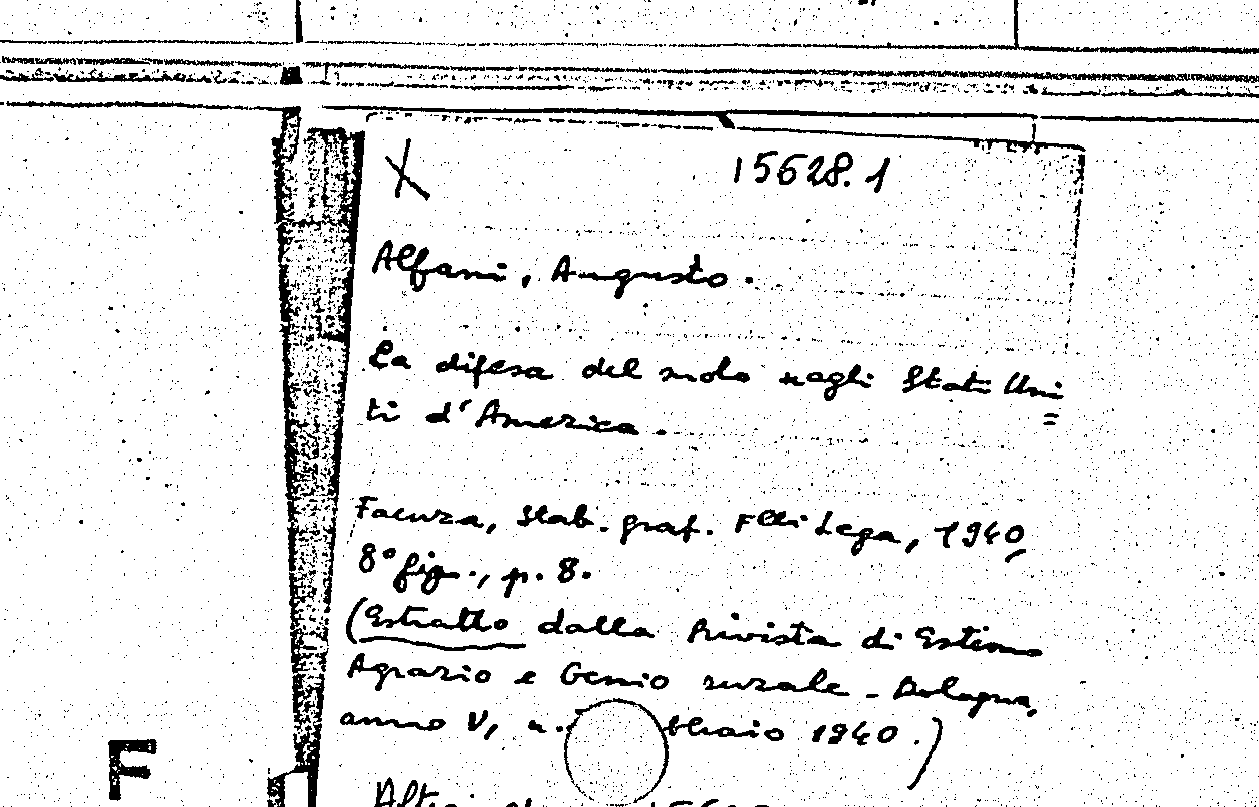 X 15628.1
Alfani, Augusto.
La difesa del suolo negli Stati Uni=
ti d'America.
Faenza, Stab. graf. F.lli Lega, 1940,
8° fig., p. 8.
(Estratto dalla Rivista di Estimo
Agrario e Genio rurale - Bologna,
anno V, n. bbraio 1940.)
F